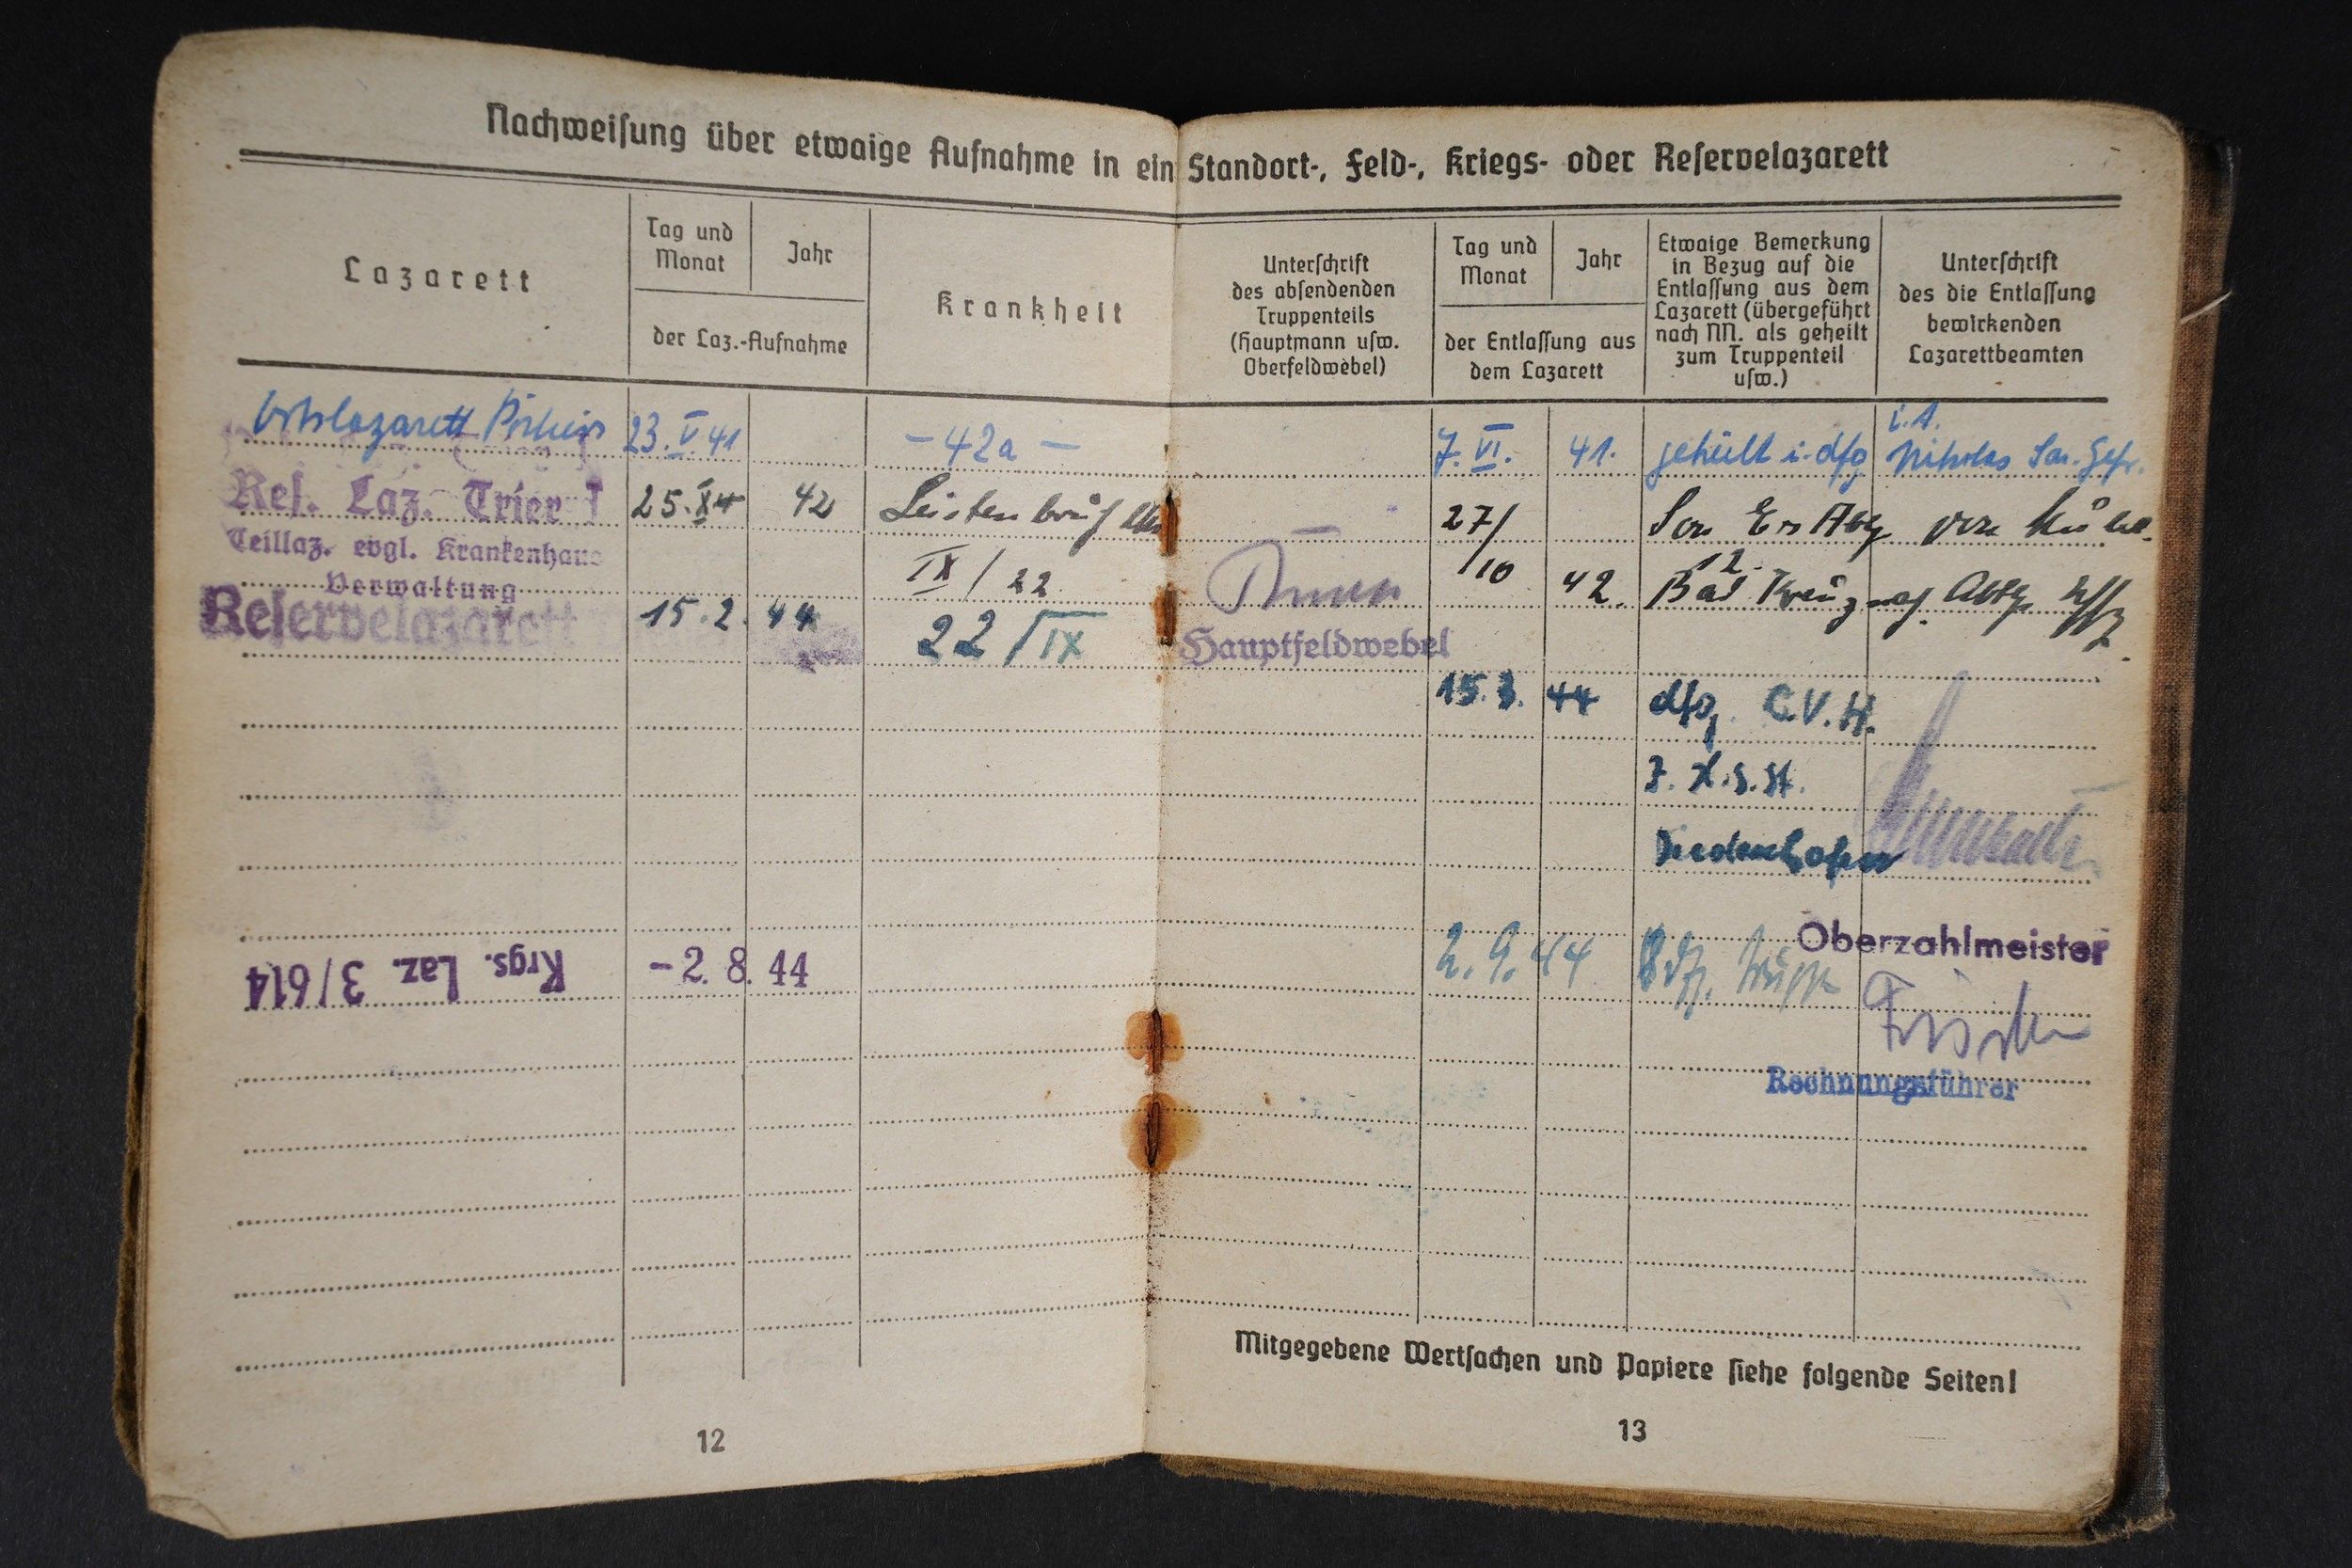 Nachweisung über etwaige Aufnahme in ein Standort-, Feld-, Kriegs- oder Reservelazarett
Lazarett
Tag und
Monat
Jahr
der Laz.-Aufnahme
Krankheit
Unterschrift
des absendenden
Truppenteils
(Hauptmann usw.
Oberfeldwebel)
Tag und
Monat
Jahr
der Entlassung aus
dem Lazarett
Etwaige Bemerkung
in Bezug auf die
Entlassung aus dem
Lazarett (übergeführt
nach NN. als geheilt
zum Truppenteil
usw.)
Unterschrift
des die Entlassung
bewirkenden
Lazarettbeamten
Ortslazarett 23. V. 41 - 42a - 7. VI. 41. geheilt i. dfg i. A. Nikolas San. Gefr.
Res. Laz. Trier I 25. 42 Leistenbruch 27/
Teillaz. evgl. Krankenhaus IX / 22 /10 42. Bad
Verwaltung
Reservelazarett 15.2. 44 22/IX
Hauptfeldwebel
15.3. 44 dfg.
Diedenhofen
Krgs. Laz. 3/614 -2. 8. 44 2. 9. 44
Oberzahlmeister
Rechnungsführer
Mitgegebene Wertsachen und Papiere siehe folgende Seiten!
12
13